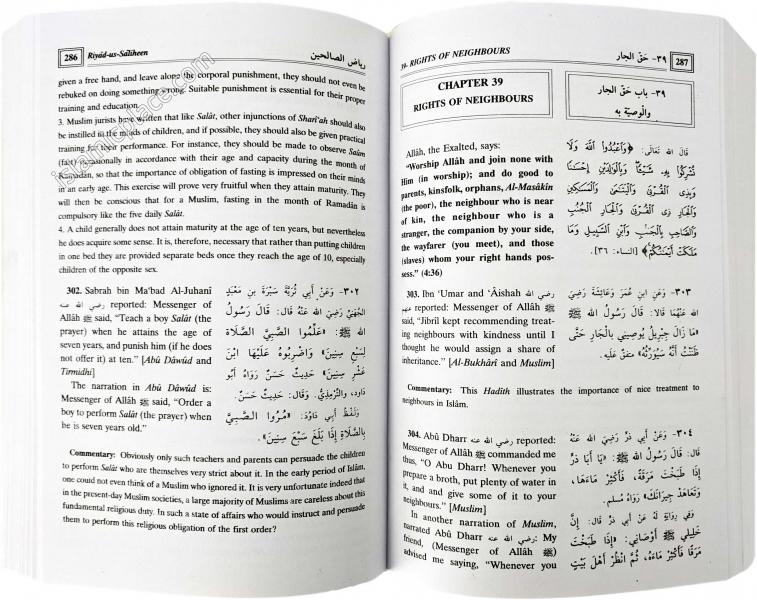 286 Riyâd-us-Sâliheen رياض الصالحين
given a free hand, and leave alone the corporal punishment, they should not even be
rebuked on doing something wrong. Suitable punishment is essential for their proper
training and education.
3. Muslim jurists have written that like Salât, other injunctions of Sharî'ah should also
be instilled in the minds of children, and if possible, they should also be given practical
training for their performance. For instance, they should be made to observe Saum
(fast) occasionally in accordance with their age and capacity during the month of
Ramadân, so that the importance of obligation of fasting is impressed on their minds
in an early age. This exercise will prove very fruitful when they attain maturity. They
will then be conscious that for a Muslim, fasting in the month of Ramadân is
compulsory like the five daily Salât.
4. A child generally does not attain maturity at the age of ten years, but nevertheless
he does acquire some sense. It is, therefore, necessary that rather than putting children
in one bed they are provided separate beds once they reach the age of 10, especially
children of the opposite sex.
302. Sabrah bin Ma'bad Al-Juhanî
رضي الله عنه reported: Messenger of
Allâh ﷺ said, "Teach a boy Salât (the
prayer) when he attains the age of
seven years, and punish him (if he does
not offer it) at ten." [Abû Dâwûd and
Tirmidhî]
The narration in Abû Dâwûd is:
Messenger of Allâh ﷺ said, "Order a
boy to perform Salât (the prayer) when
he is seven years old."
٣٠٢- وَعَنْ أَبي ثُرَيَّةَ سَبْرَةَ بنِ مَعْبَدٍ
الجُهَنِيِّ رَضِيَ اللهُ عَنْهُ قَالَ: قَالَ رَسُولُ
اللهِ ﷺ: «عَلِّمُوا الصَّبِيَّ الصَّلَاةَ
لِسَبْعِ سِنِينَ، وَاضْرِبُوهُ عَلَيْهَا ابْنَ
عَشْرِ سِنِينَ» حَدِيثٌ حَسَنٌ رَوَاهُ أَبُو
دَاوُد، وَالتِّرْمِذِيُّ، وَقَالَ: حَدِيثٌ حَسَنٌ.
وَلَفْظُ أَبي دَاوُدَ: «مُرُوا الصَّبِيَّ
بِالصَّلَاةِ إِذَا بَلَغَ سَبْعَ سِنِينَ».
Commentary: Obviously only such teachers and parents can persuade the children
to perform Salât who are themselves very strict about it. In the early period of Islâm,
one could not even think of a Muslim who ignored it. It is very unfortunate indeed that
in the present-day Muslim societies, a large majority of Muslims are careless about this
fundamental religious duty. In such a state of affairs who would instruct and persuade
them to perform this religious obligation of the first order?
39- RIGHTS OF NEIGHBOURS ٣٩- حَقّ الجار 287
CHAPTER 39
RIGHTS OF NEIGHBOURS
٣٩- باب حَقّ الجار
والْوَصِيّة به
Allâh, the Exalted, says:
"Worship Allâh and join none with
Him (in worship); and do good to
parents, kinsfolk, orphans, Al-Masâkin
(the poor), the neighbour who is near
of kin, the neighbour who is a
stranger, the companion by your side,
the wayfarer (you meet), and those
(slaves) whom your right hands pos-
sess." (4:36)
قَالَ الله تَعَالَى: ﴿وَاعْبُدُوا اللَّهَ وَلَا
تُشْرِكُوا بِهِ شَيْئًا وَبِالْوَالِدَيْنِ إِحْسَانًا
وَبِذِي الْقُرْبَى وَالْيَتَامَى وَالْمَسَاكِينِ
وَالْجَارِ ذِي الْقُرْبَى وَالْجَارِ الْجُنُبِ
وَالصَّاحِبِ بِالْجَنْبِ وَابْنِ السَّبِيلِ وَمَا
مَلَكَتْ أَيْمَانُكُمْ﴾ [النساء: ٣٦].
303. Ibn 'Umar and 'Âishah رضي الله
عنهم reported: Messenger of Allâh ﷺ
said, "Jibrîl kept recommending treat-
ing neighbours with kindness until I
thought he would assign a share of
inheritance." [Al-Bukhâri and Muslim]
٣٠٣- وَعَنِ ابنِ عُمَرَ وَعَائِشَةَ رَضِيَ
اللهُ عَنْهُمَا قَالَا: قَالَ رَسُولُ اللهِ ﷺ:
«مَا زَالَ جِبْرِيلُ يُوصِينِي بِالْجَارِ حَتَّى
ظَنَنْتُ أَنَّهُ سَيُوَرِّثُهُ» متفقٌ عليه.
Commentary: This Hadîth illustrates the importance of nice treatment to
neighbours in Islâm.
304. Abû Dharr رضي الله عنه reported:
Messenger of Allâh ﷺ commanded me
thus, "O Abu Dharr! Whenever you
prepare a broth, put plenty of water in
it, and and give some of it to your
neighbours." [Muslim]
In another narration of Muslim,
narrated Abû Dharr رضي الله عنه: My
friend, (Messenger of Allâh ﷺ)
advised me saying, "Whenever you
٣٠٤- وَعَنْ أَبي ذَرٍّ رَضِيَ اللهُ عَنْهُ
قَالَ: قَالَ رَسُولُ اللهِ ﷺ: «يَا أَبَا ذَرٍّ
إِذَا طَبَخْتَ مَرَقَةً، فَأَكْثِرْ مَاءَهَا،
وَتَعَاهَدْ جِيرَانَكَ» رَوَاهُ مُسلم.
وفي رِوَايَةٍ لَهُ عَنْ أَبي ذَرٍّ قَالَ: إِنَّ
خَلِيلِي ﷺ أَوْصَانِي: «إِذَا طَبَخْتَ
مَرَقًا فَأَكْثِرْ مَاءَهُ، ثُمَّ انْظُرْ أَهْلَ بَيْتٍ
islamicplace.com